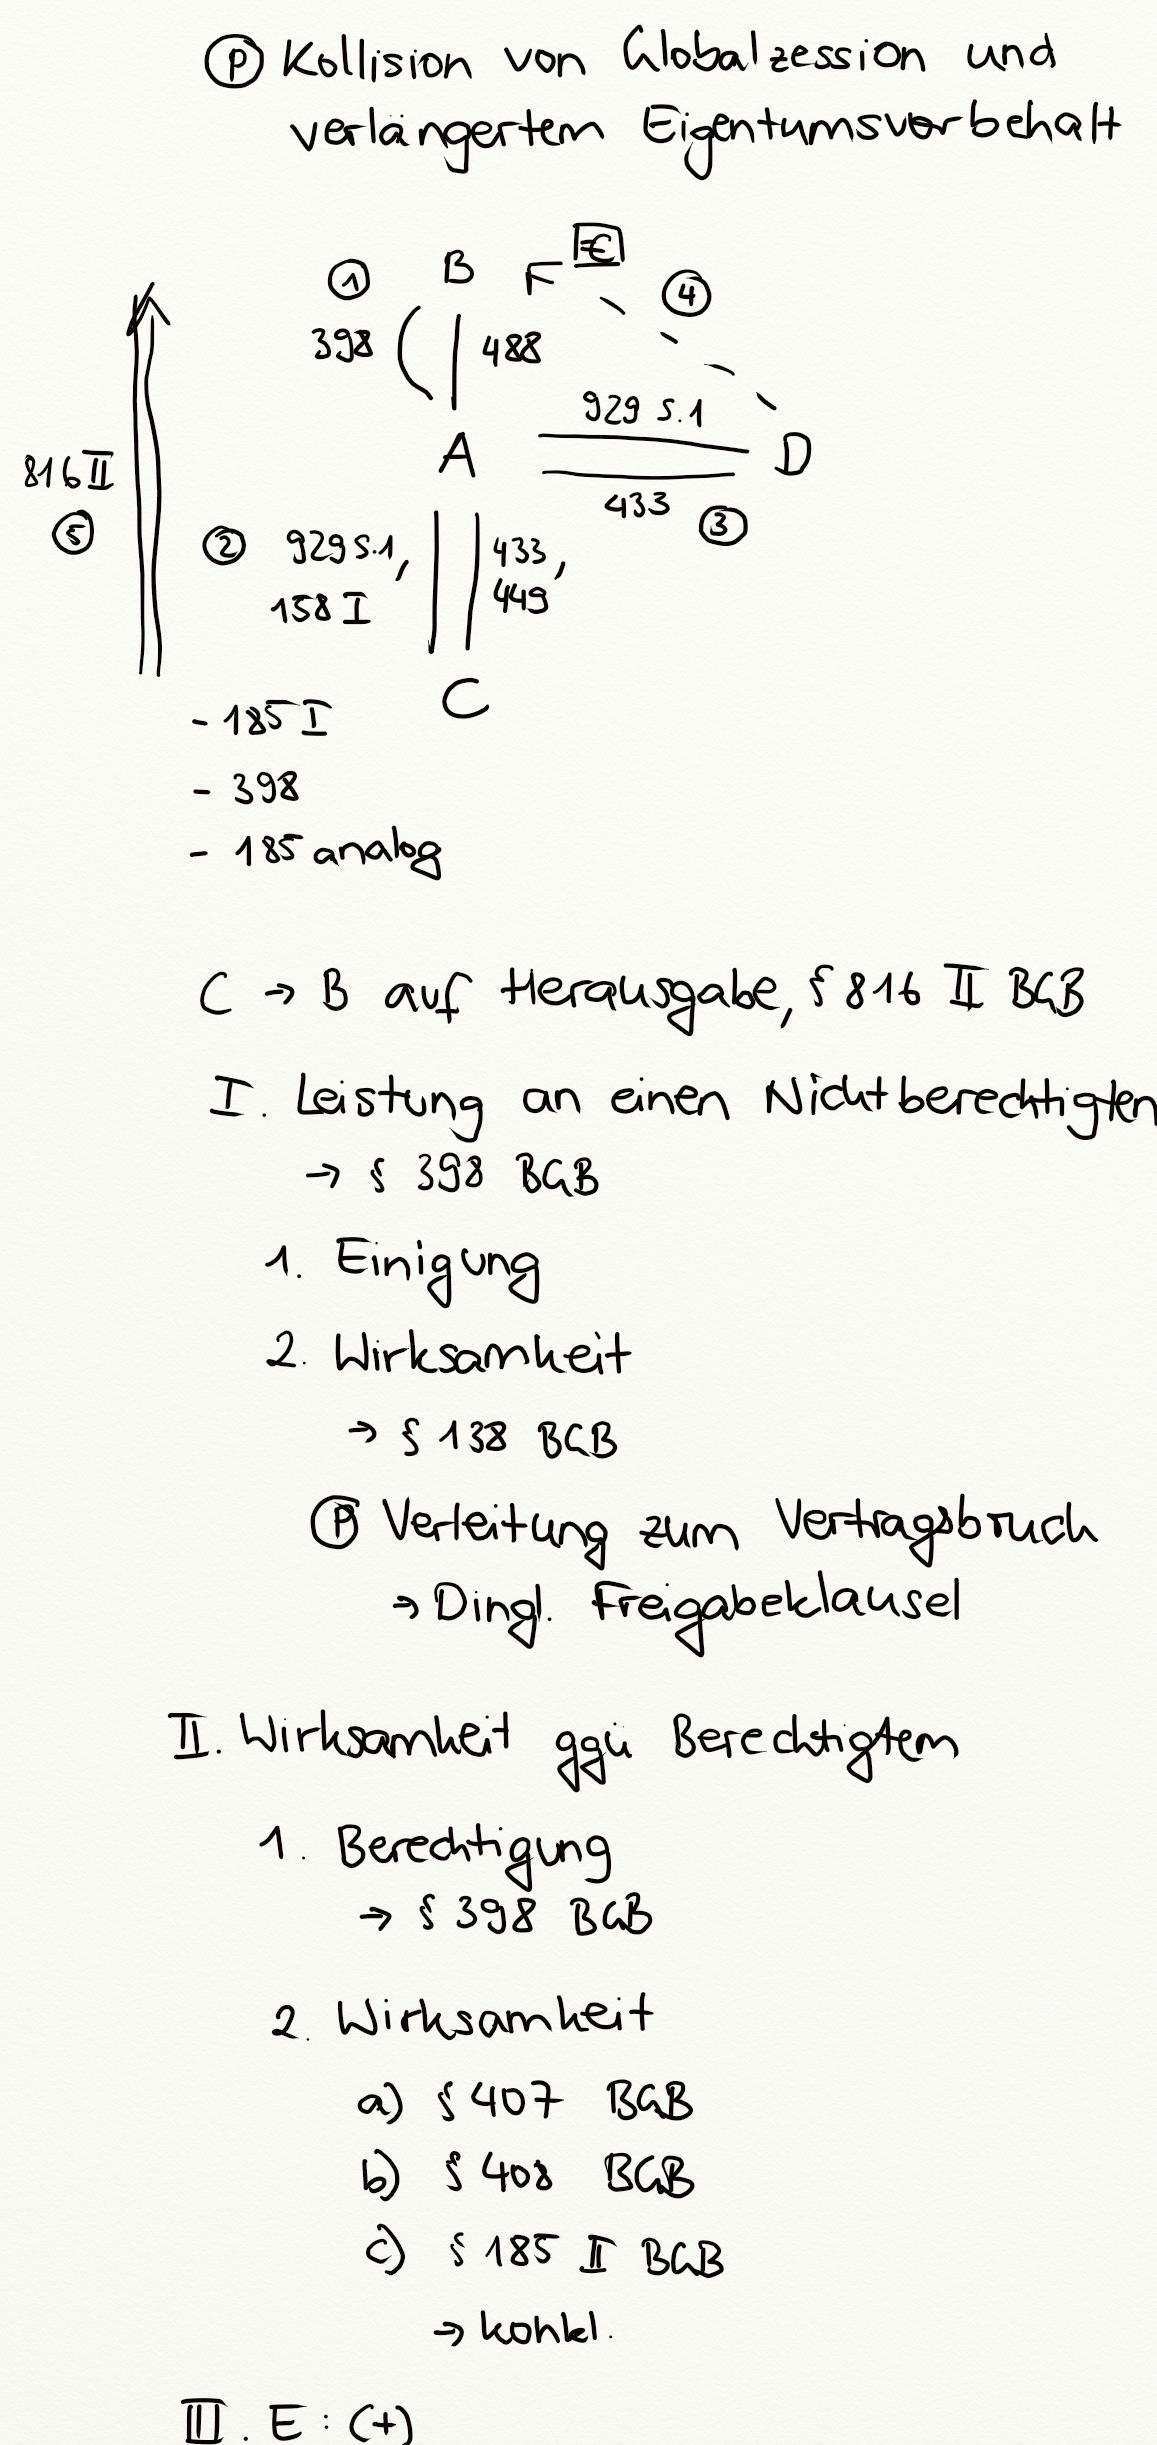 Ⓟ Kollision von Globalzession und
verlängertem Eigentumsvorbehalt
① B € ④
398 488
929 S.1
816 II A D
433 ③
⑤ ② 929 S.1, 433,
158 I 449
C
- 185 I
- 398
- 185 analog
C → B auf Herausgabe, § 816 II BGB
I. Leistung an einen Nichtberechtigten
→ § 398 BGB
1. Einigung
2. Wirksamkeit
→ § 138 BGB
Ⓟ Verleitung zum Vertragsbruch
→ Dingl. Freigabeklausel
II. Wirksamkeit ggü Berechtigtem
1. Berechtigung
→ § 398 BGB
2. Wirksamkeit
a) § 407 BGB
b) § 408 BGB
c) § 185 II BGB
→ konkl.
III. E: (+)